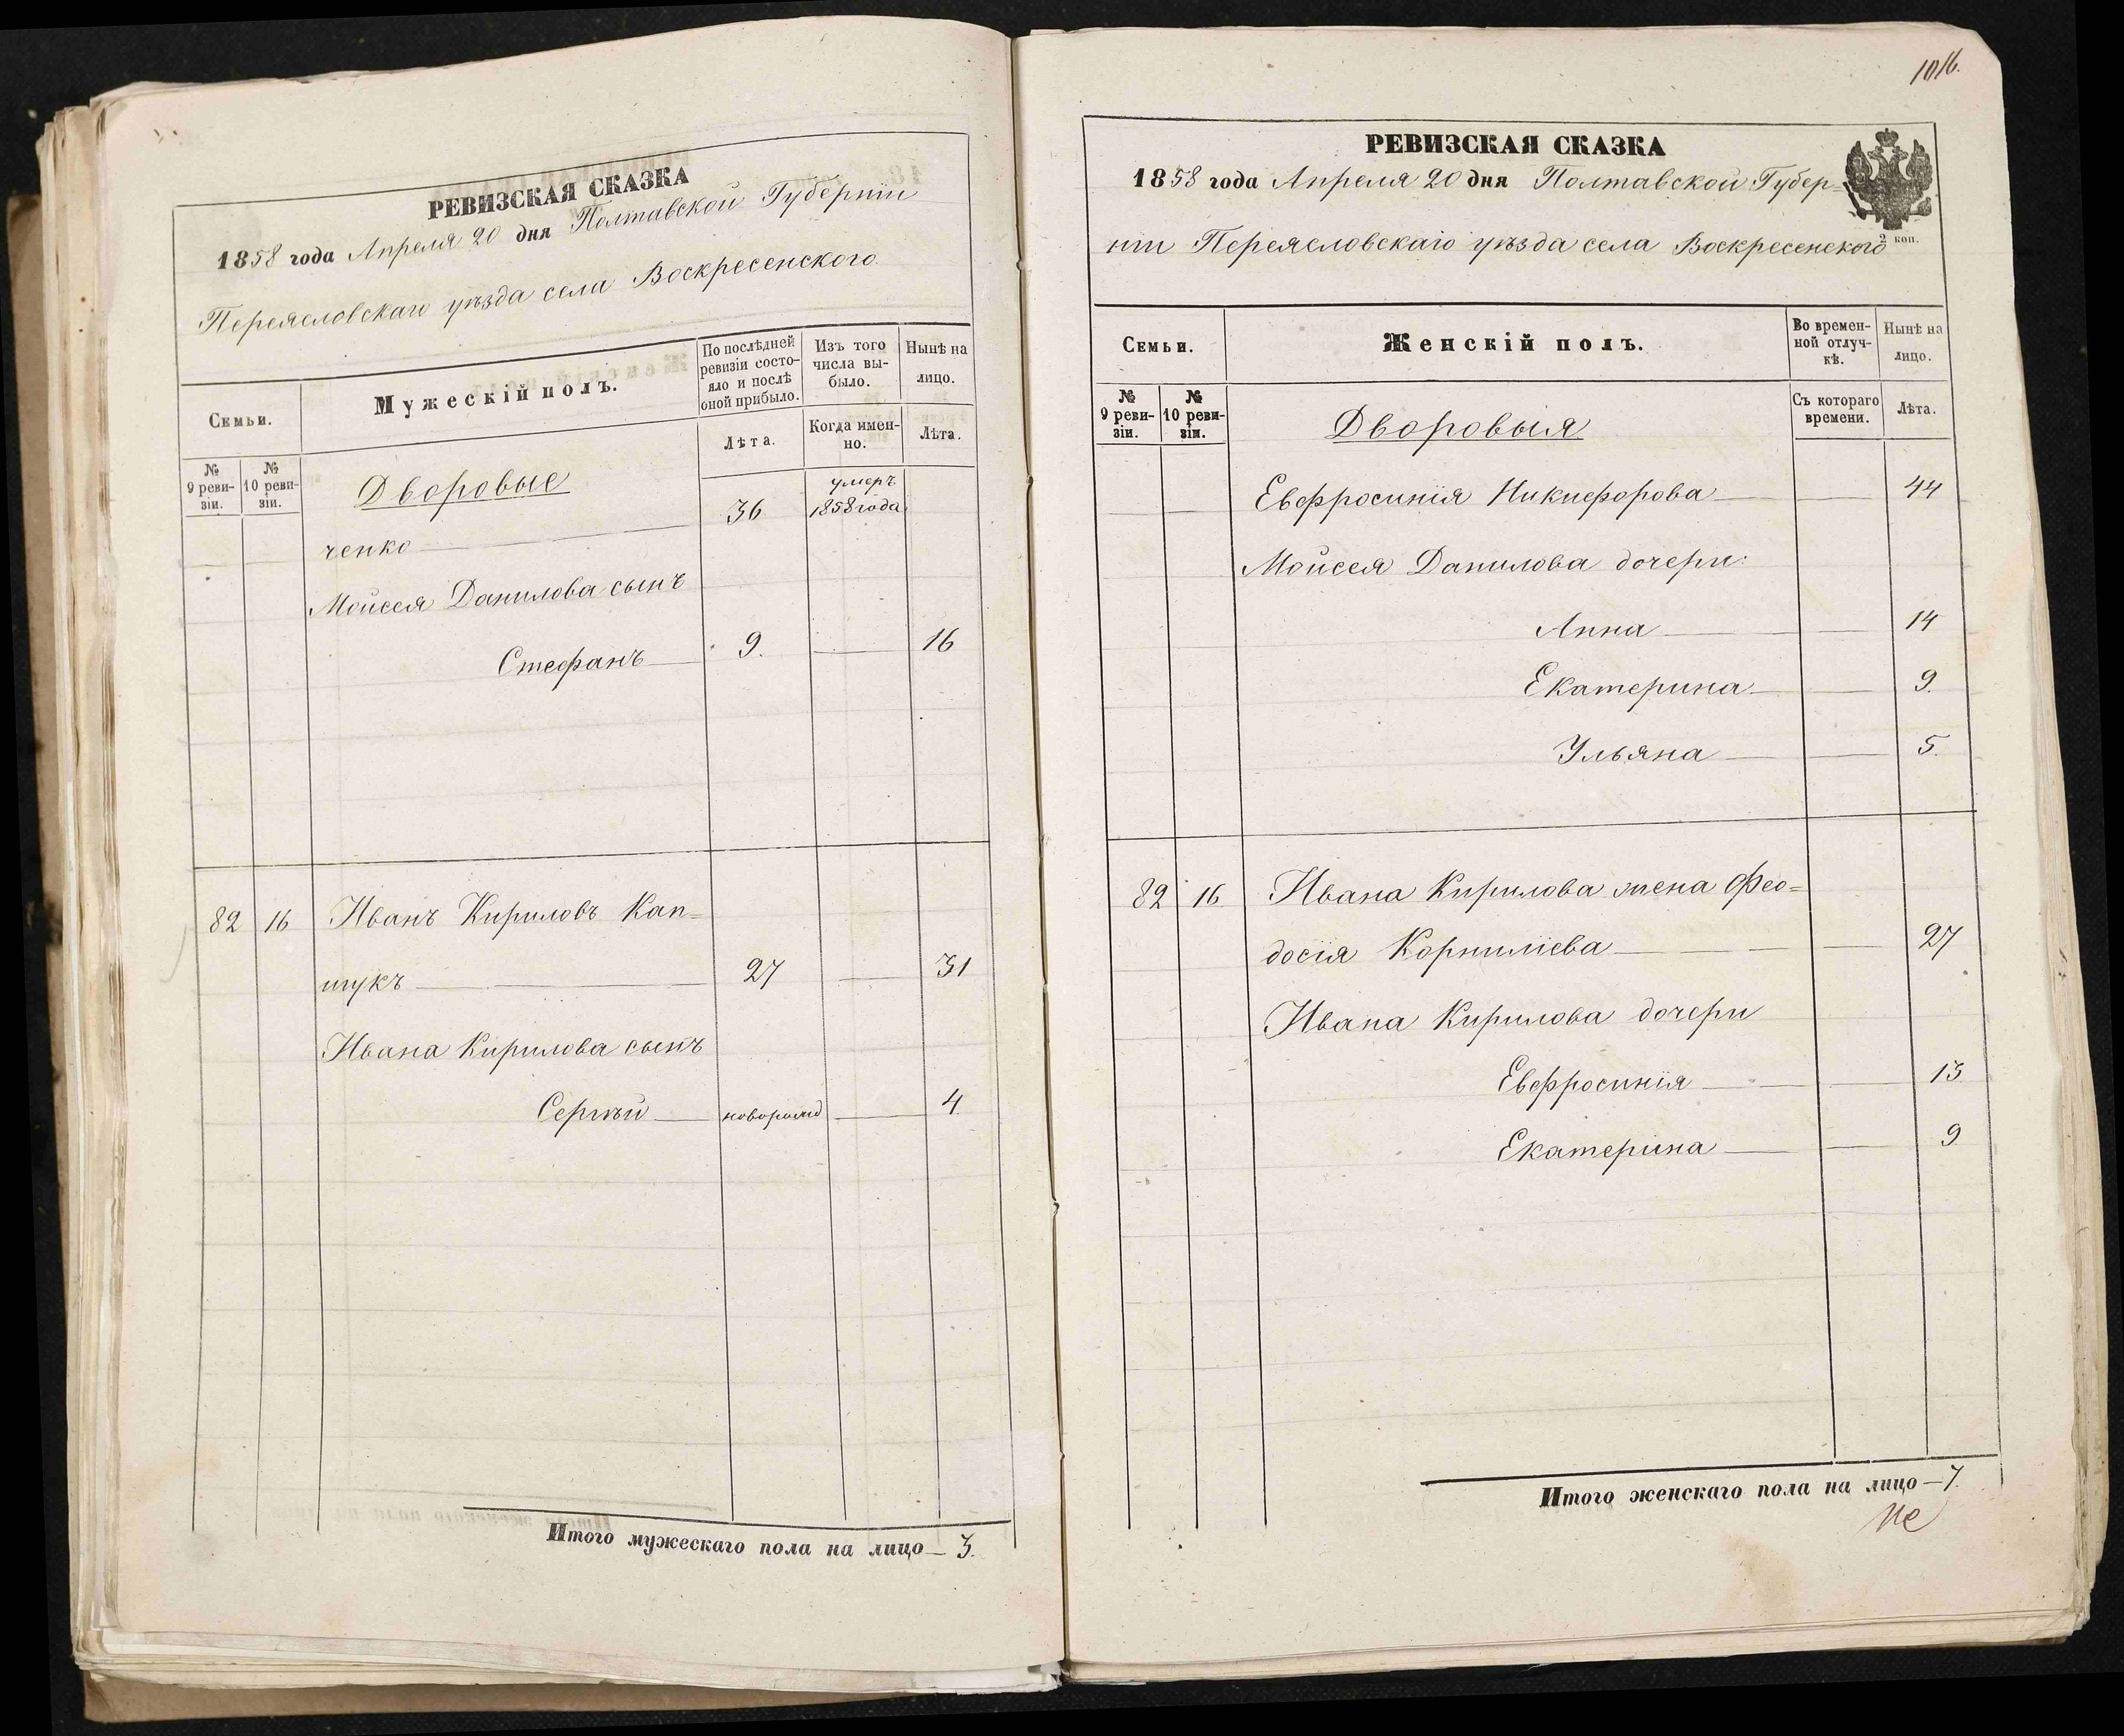 РЕВИЗСКАЯ СКАЗКА
1858 года Апреля 20 дня Полтавской Губерніи
Переясловскаго уѣзда села Воскресенского
Семьи.
Мужескій полъ.
По послѣдней ревизіи состояло и послѣ оной прибыло.
Изъ того числа выбыло.
Нынѣ на лицо.
Лѣта.
Когда именно.
Лѣта.
№ 9 ревизіи.
№ 10 ревизіи.
Дворовые
ченко 36 умеръ 1858 года
Мойсея Данилова сынъ
Стефанъ 9. 16
82 16 Иванъ Кириловъ Кап=
шукъ 27 31
Ивана Кирилова сынъ
Сергѣй новорожд 4
Итого мужескаго пола на лицо — 3.
1016.
РЕВИЗСКАЯ СКАЗКА
1858 года Апреля 20 дня Полтавской Губер=
ніи Переясловскаго уѣзда села Воскресенского
2 коп.
Семьи.
Женскій полъ.
Во временной отлучкѣ.
Нынѣ на лицо.
№ 9 ревизіи.
№ 10 ревизіи.
Съ котораго времени.
Лѣта.
Дворовыя
Евфросинія Никифорова 44
Мойсея Данилова дочери:
Анна 14
Екатерина 9
Ульяна 5.
82 16 Ивана Кирилова жена Фео=
досія Корниліева 27
Ивана Кирилова дочери
Евфросинія 13
Екатерина 9
Итого женскаго пола на лицо — 7.